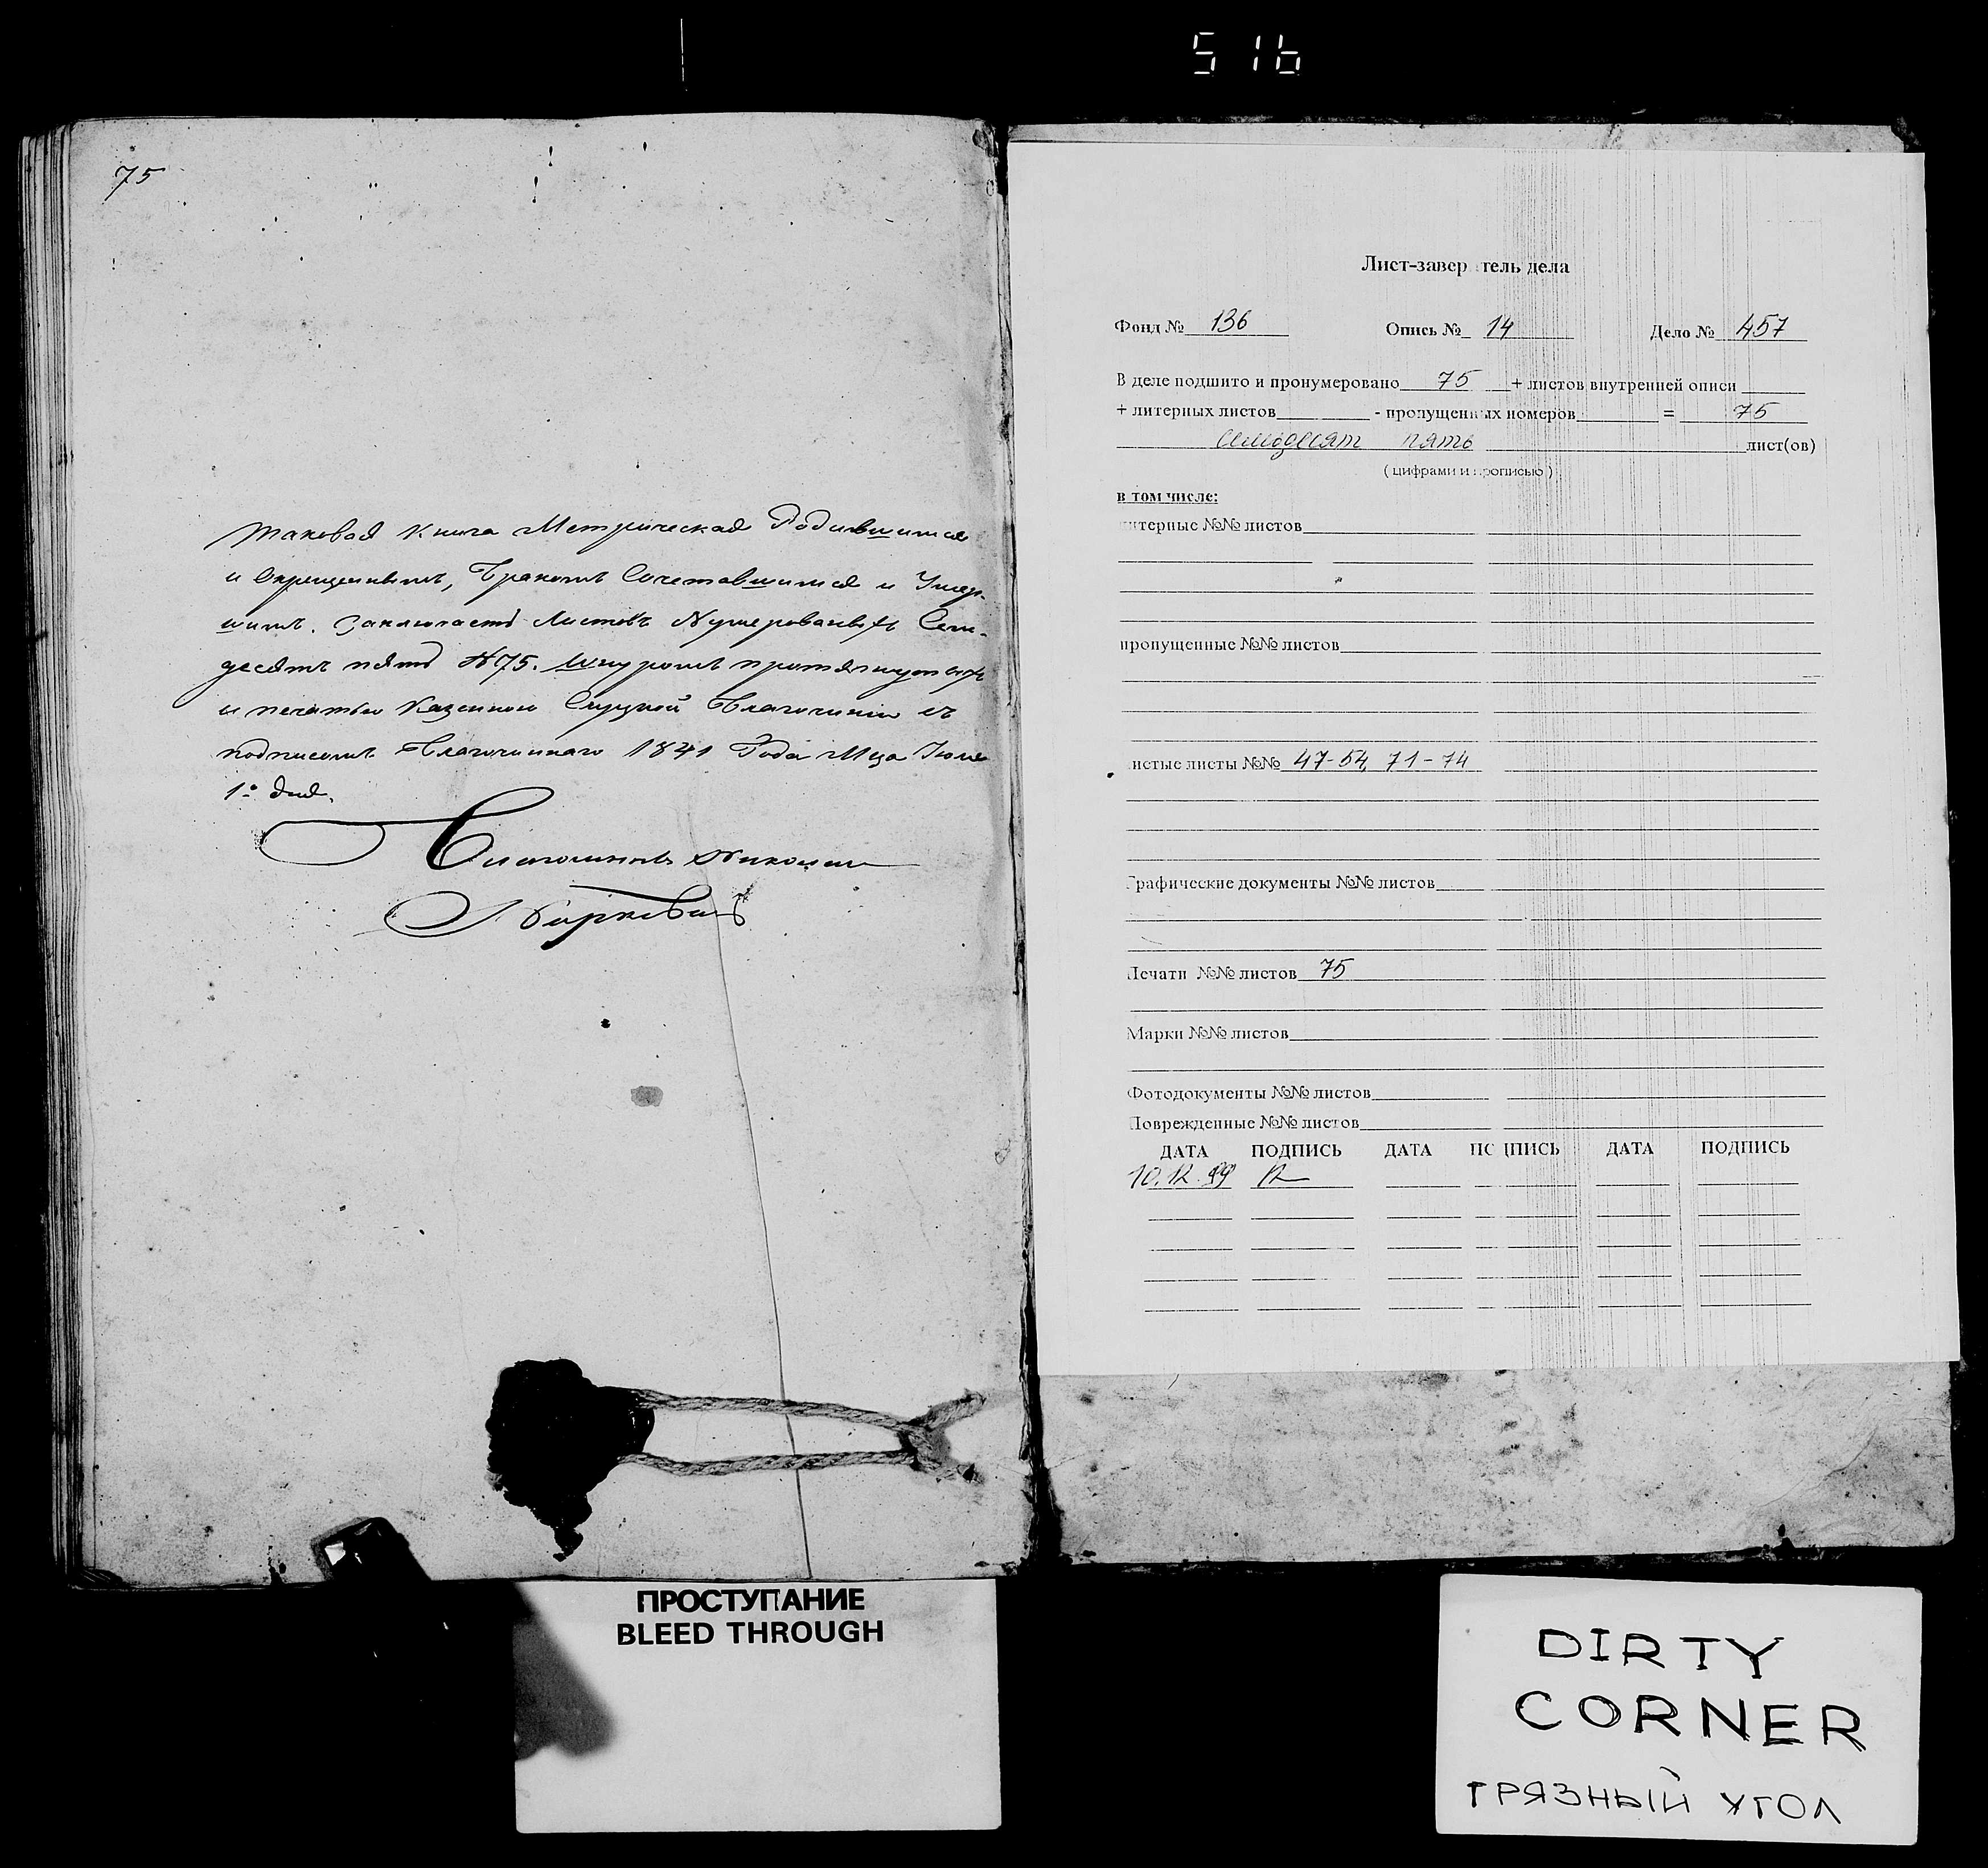 516
75
Таковая Книга Метрическая Родившимся
и Окрещеннымъ, Бракомъ Сочетавшимся и Умер-
шимъ. Заключаетъ Листовъ Нумерованныхъ Семь-
десятъ пять № 75. Шнуромъ протянутыхъ
и печатью Казенною Слуцкой Благочинiи съ
подписомъ Благочиннаго 1841 Года Мца Iюля
1о дня.
Благочинный Николай
Лист-завер тель дела
Фонд № 136 Опись № 14 Дело № 457
В деле подшито и пронумеровано 75 + листов внутренней описи
+ литерных листов - пропущенных номеров = 75
семьдесят пять лист(ов)
( цифрами и прописью )
в том числе:
литерные №№ листов
пропущенные №№ листов
чистые листы №№ 47-54, 71-74
Графические документы №№ листов
Печати №№ листов 75
Марки №№ листов
Фотодокументы №№ листов
Поврежденные №№ листов
ДАТА ПОДПИСЬ ДАТА ПОДПИСЬ ДАТА ПОДПИСЬ
10.12.99
ПРОСТУПАНИЕ
BLEED THROUGH
DIRTY
CORNER
ГРЯЗНЫЙ УГОЛ